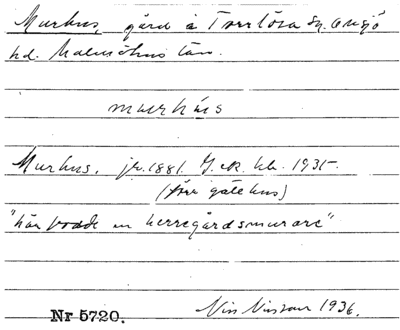 Murhus, gård å Torrlösa sn. Onsjö
hd. Malmöhus län.
murhús
Murhus, jr. 1881. J.R. hk. 1935.
(förr gatehus)
"här bodde en herregårdsmurare"
Nr 5720. Nils Nilsson 1936.